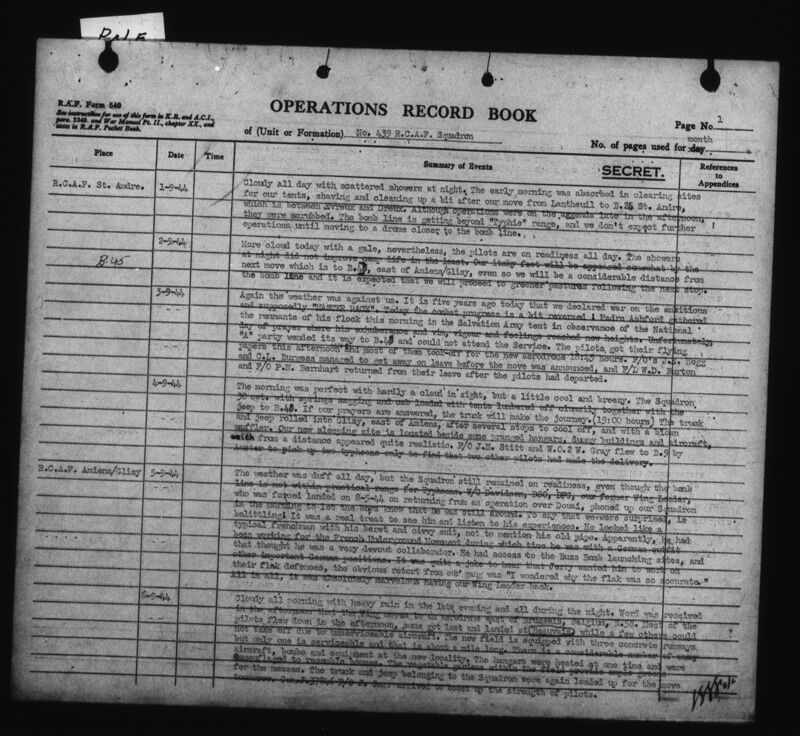 R.A.F. Form 540
See instructions for use of this form in K.R. and A.C.I.,
para. 2349, and War Manual Pt. II., chapter XX., and
notes in R.A.F. Pocket Book.
OPERATIONS RECORD BOOK
of (Unit or Formation) No. 439 R.C.A.F. Squadron
Page No. 1
month
No. of pages used for day
Place Date Time Summary of Events SECRET. References to Appendices
R.C.A.F. St. Andre. 1-9-44 Cloudy all day with scattered showers at night. The early morning was absorbed in clearing sites
for our tents, shaving and cleaning up a bit after our move from Lantheuil to B.24 St. Andre,
which is between Evreux and Dreux. Although operations were on the agenda late in the afternoon,
they were scrubbed. The bomb line is getting beyond "Typhie" range, and we don't expect further
operations until moving to a drome closer to the bomb line.
2-9-44 More cloud today with a gale, nevertheless, the pilots are on readiness all day. The showers
at night did not improve camp life in the least. Our itchy feet will be appeased somewhat by the
B.45 next move which is to B.48, east of Amiens/Glisy, even so we will be a considerable distance from
the bomb line and it is expected that we will proceed to greener pastures following the next stop.
3-9-44 Again the weather was against us. It is five years ago today that we declared war on the ambitious
and supposedly "MASTER RACE". Today the combat progress is a bit reversed! Padre Ashford gathered
the remnants of his flock this morning in the Salvation Army tent in observance of the National
day of prayer where his exhuberance and vim, vigour and feelings reached new heights. Unfortunately,
"A" party wended its way to B.48 and could not attend the Service. The pilots got their flying
papers this afternoon and most of them took-off for the new aerodrome 18:45 hours. F/O's J.G. Hogg
and C.L. Burgess managed to get away on leave before the move was announced, and F/L W.D. Burton
and F/O P.N. Bernhart returned from their leave after the pilots had departed.
4-9-44 The morning was perfect with hardly a cloud in sight, but a little cool and breezy. The Squadron
30 cwt. with springs sagging and cab loaded with tents lumbered off clumsily together with the
jeep to B.48. If our prayers are answered, the truck will make the journey. (19:00 hours) The truck
and jeep rolled into Glisy, east of Amiens, after several stops to cool off, and with a blown
muffler. Our new sleeping site is located beside some pranged hangars, dummy buildings and aircraft,
which from a distance appeared quite realistic. F/O J.H. Stitt and W.O.2 W. Gray flew to B.9 by
Auster to pick up two typhoons only to find that two other pilots had made the delivery.
R.C.A.F. Amiens/Glisy 5-9-44 The weather was duff all day, but the Squadron still remained on readiness, even though the bomb
line is not within practical range for Typhoons. W/C Davidson, DSO, DFC, our former Wing Leader,
who was forced landed on 8-5-44 on returning from an operation over Douai, phoned up our Squadron
in the morning to let the boys know that he was still around. To say that we were surprised, is
belittling! It was a real treat to see him and listen to his experiences. He looked like a
typical frenchman with his beret and civvy suit, not to mention his old pipe. Apparently, he had
been working for the French Underground Movement during which time he was with a German outfit
that thought he was a very devout collaborator. He had access to the Buzz Bomb launching sites, and
other important German positions. It was quite a joke to hear that Jerry wanted him to work on
their flak defences, the obvious retort from our gang was "I wondered why the flak was so accurate."
All in all, it was absolutely marvelous having our Wing Leader back.
6-9-44 Cloudy all morning with heavy rain in the late evening and all during the night. Word was received
in the afternoon that the Wing moves to an aerodrome east of Brussels, Belgium, B.58. Most of the
pilots flew down in the afternoon, some got lost and landed at Beauvais, while a few others could
not take off due to unserviceable aircraft. The new field is equipped with three concrete runways
but only one is serviceable and that is about a mile long. There is a considerable number of enemy
aircraft, bombs and equipment at the new locality. The hangars were heated at one time and were
camouflaged to resemble houses. The vegetable gardens within the field provide ample greens
for the messes. The truck and jeep belonging to the Squadron were again loaded up for the move
tomorrow. arrived to boost up the strength of pilots.